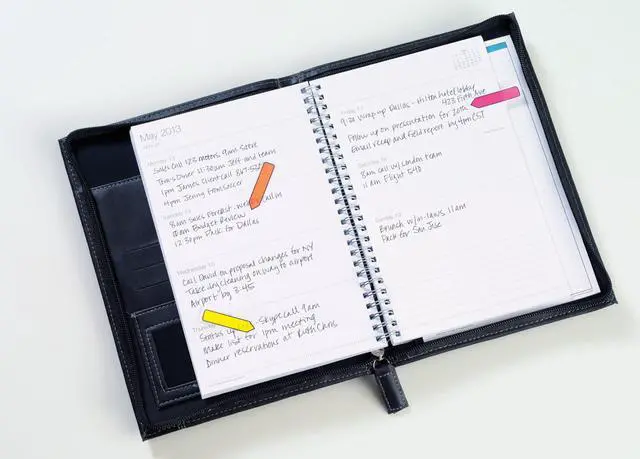 May 2013
Monday 13
Sales call 123 motors 9am Steve
Trans Diner 11:30am Jeff and team
1pm James Client call
4pm Jenny from soccer
8am Sales forecast call in
10am Budget Review
12:30pm Pack for Dallas
Wednesday 15
Call David on proposal changes for NY
Take dry cleaning on way to airport
Airport by 3:45
Status Skype call 9am
Make list for 1pm meeting
Dinner reservations at Ruth Chris
Wrap up Dallas - Hilton hotel lobby
423 Fifth Ave
Follow up on presentation for 20th
Email recap and field report by 4pm CST
8am call w/London team
11am Flight 540
Brunch w/in-laws 11am
Pack for San Jose